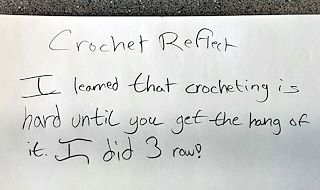 Crochet Reflect
I learned that crocheting is
hard until you get the hang of
it. I did 3 row!